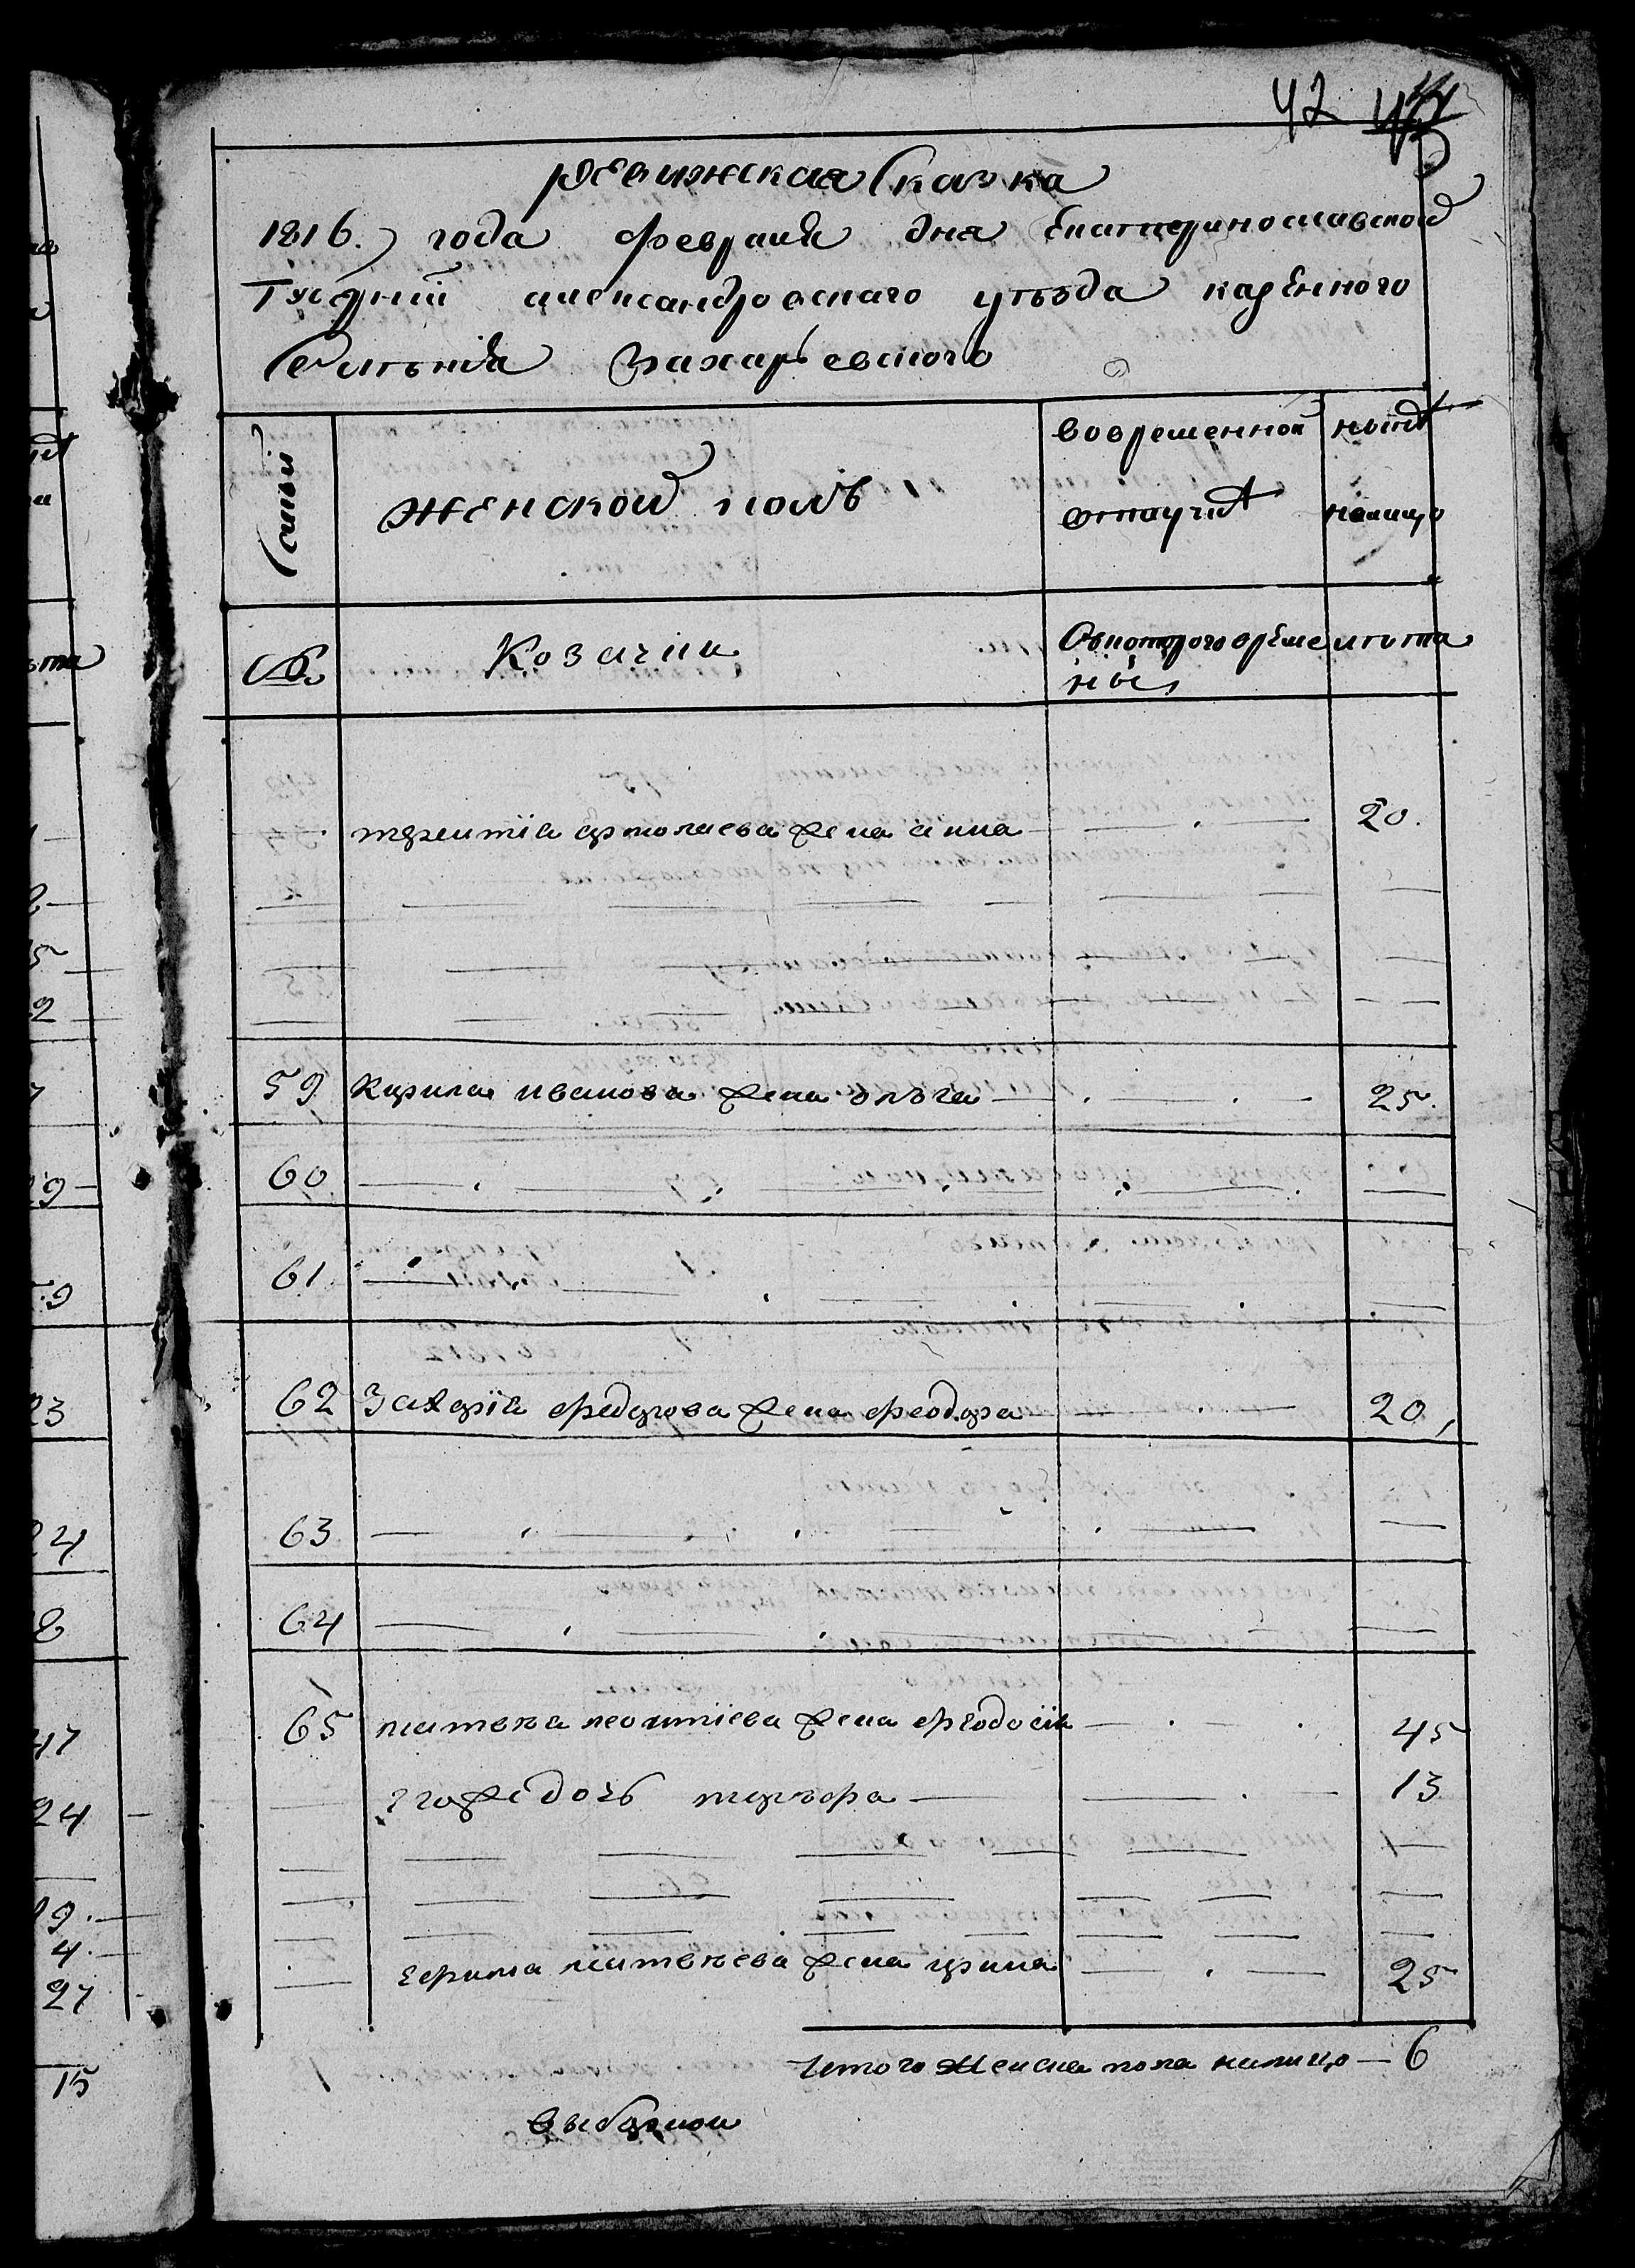 42
ревижская Сказка
1816. года февраля дня Екатеринославской
Губерніи александровскаго уѣзда казенного
Селенія Захарьевского
Семьи
женской полъ
вовременной
отлучке
ныне
налицо
№
Козачіи
Скоторого време
ны
лѣта
терентія ермолаева жена анна 20.
59 Кирила иванова жена ольга 25.
60
61
62 Захарія федорова жена феодора 20,
63
64
65 матвѣя леонтіева жена феодосія 45
его же дочь 13
ефима матвѣева жена ирина 25
Итого женска пола налицо — 6
выборной
2
5
9
29
23
24
8
47
24
19.
4.
27
15